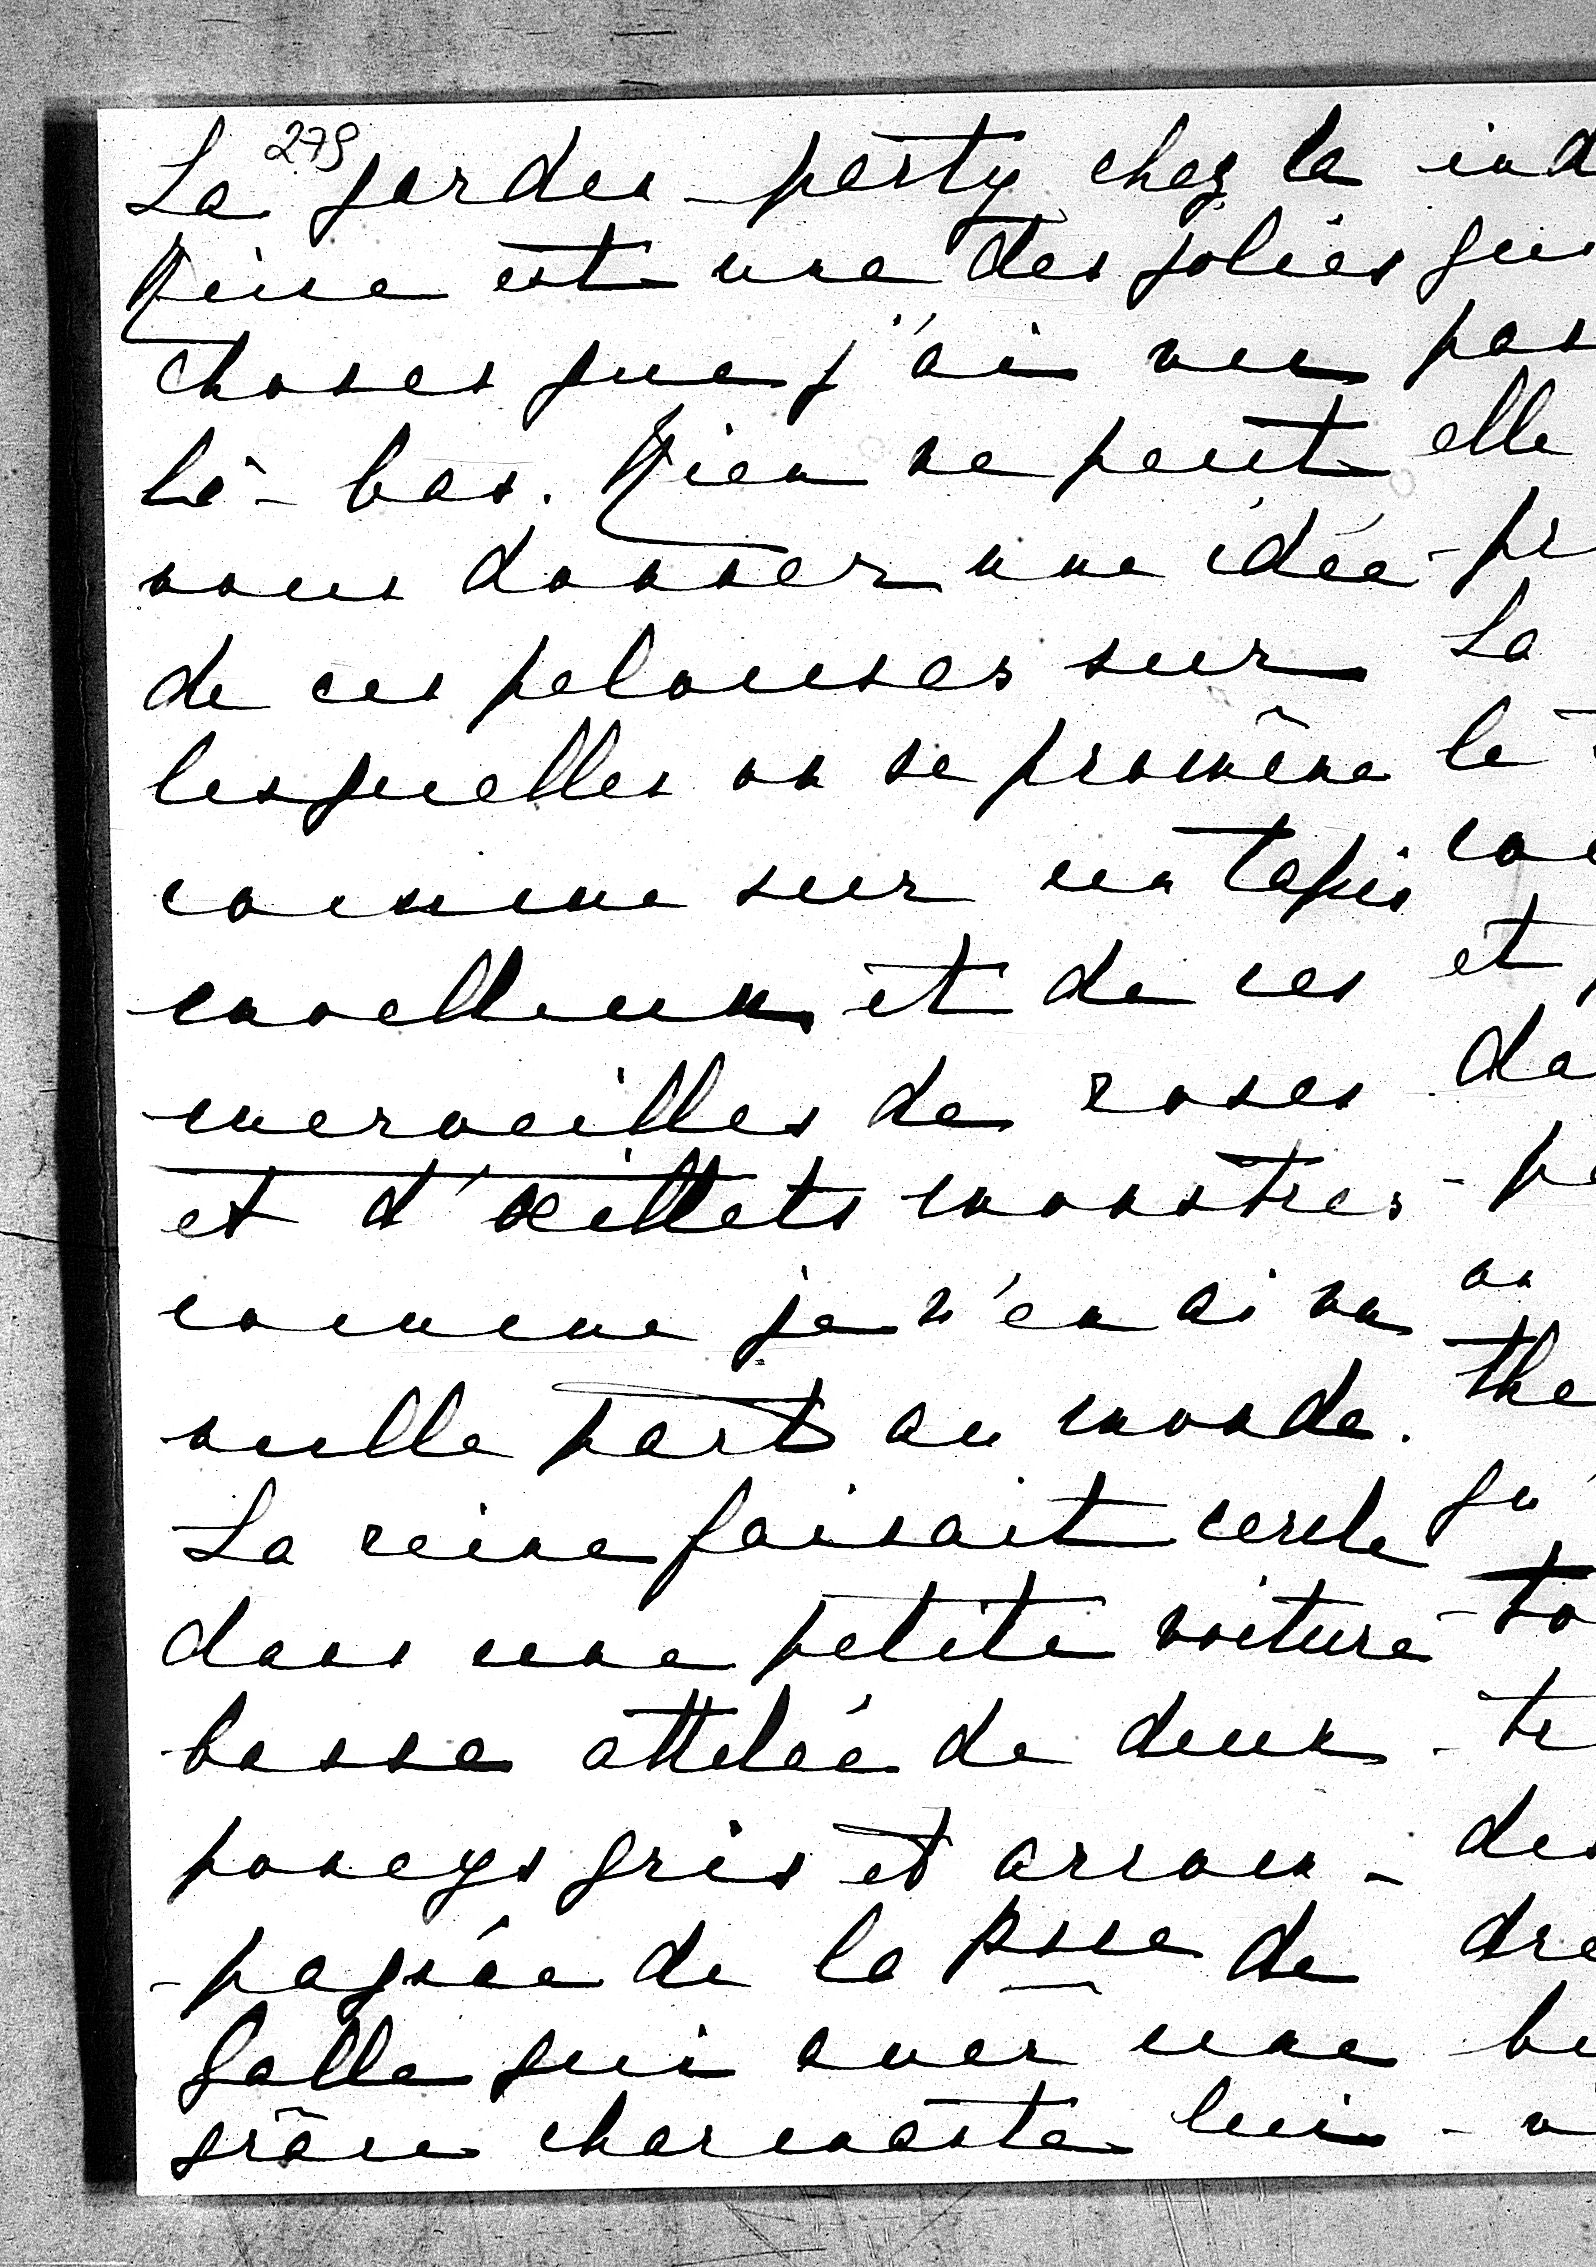 279
La garden-party chez la
Reine est une des jolies
choses que j'ai vu
là-bas. Rien ne peut
vous donner une idée
de ces pelouses sur
lesquelles on se promène
comme sur un tapis
moelleux, et de ces
merveilles de roses
et d'œillets monstres
comme je n'en ai vu
nulle part au monde.
La reine faisait cercle
dans une petite voiture
basse attelée de deux
poneys gris et accom-
-pagnée de la Psse de
Galle qui avec une
grâce charmante lui
elle
La
le
et
on